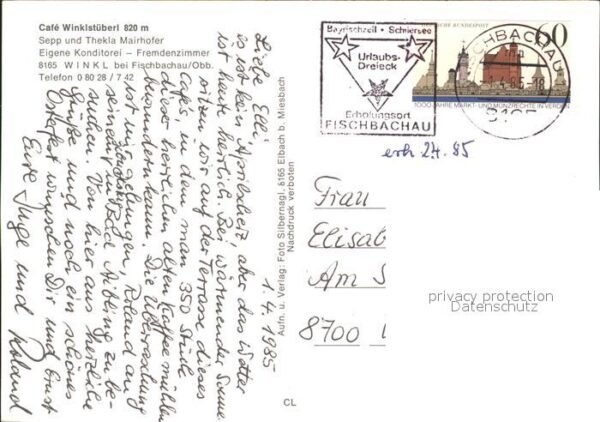 Café Winklstüberl 820 m
Sepp und Thekla Mairhofer
Eigene Konditorei – Fremdenzimmer
8165 WINKL bei Fischbachau/Obb.
Telefon 0 80 28 / 7 42
1.4.1985
Liebe Elli,
es ist kein Aprilscherz, aber das Wetter
ist heute herrlich. Bei wärmender Sonne
sitzen wir auf der Terrasse dieses
Cafés, in dem man 350 Stück
dieser herrlichen alten Kaffeemühlen
bewundern kann. Die Überraschung
ist mir gelungen, Roland am
Samstag
seinerzeit in Bad Aibling zu be-
suchen. Von hier aus herzliche
Grüße und noch ein schönes
Osterfest wünschen Dir und Ernst
Eure Inge und Roland
Aufn. u. Verlag: Foto Silbernagl, 8165 Elbach b. Miesbach
Nachdruck verboten
CL
Bayrischzell - Schliersee
Urlaubs-
Dreieck
Erholungsort
FISCHBACHAU
DEUTSCHE BUNDESPOST
60
1000 JAHRE MARKT- UND MÜNZRECHTE IN VERDEN
FISCHBACHAU
85-18
erh 2.4.85
Frau
Elisab
Am S
8700
privacy protection
Datenschutz